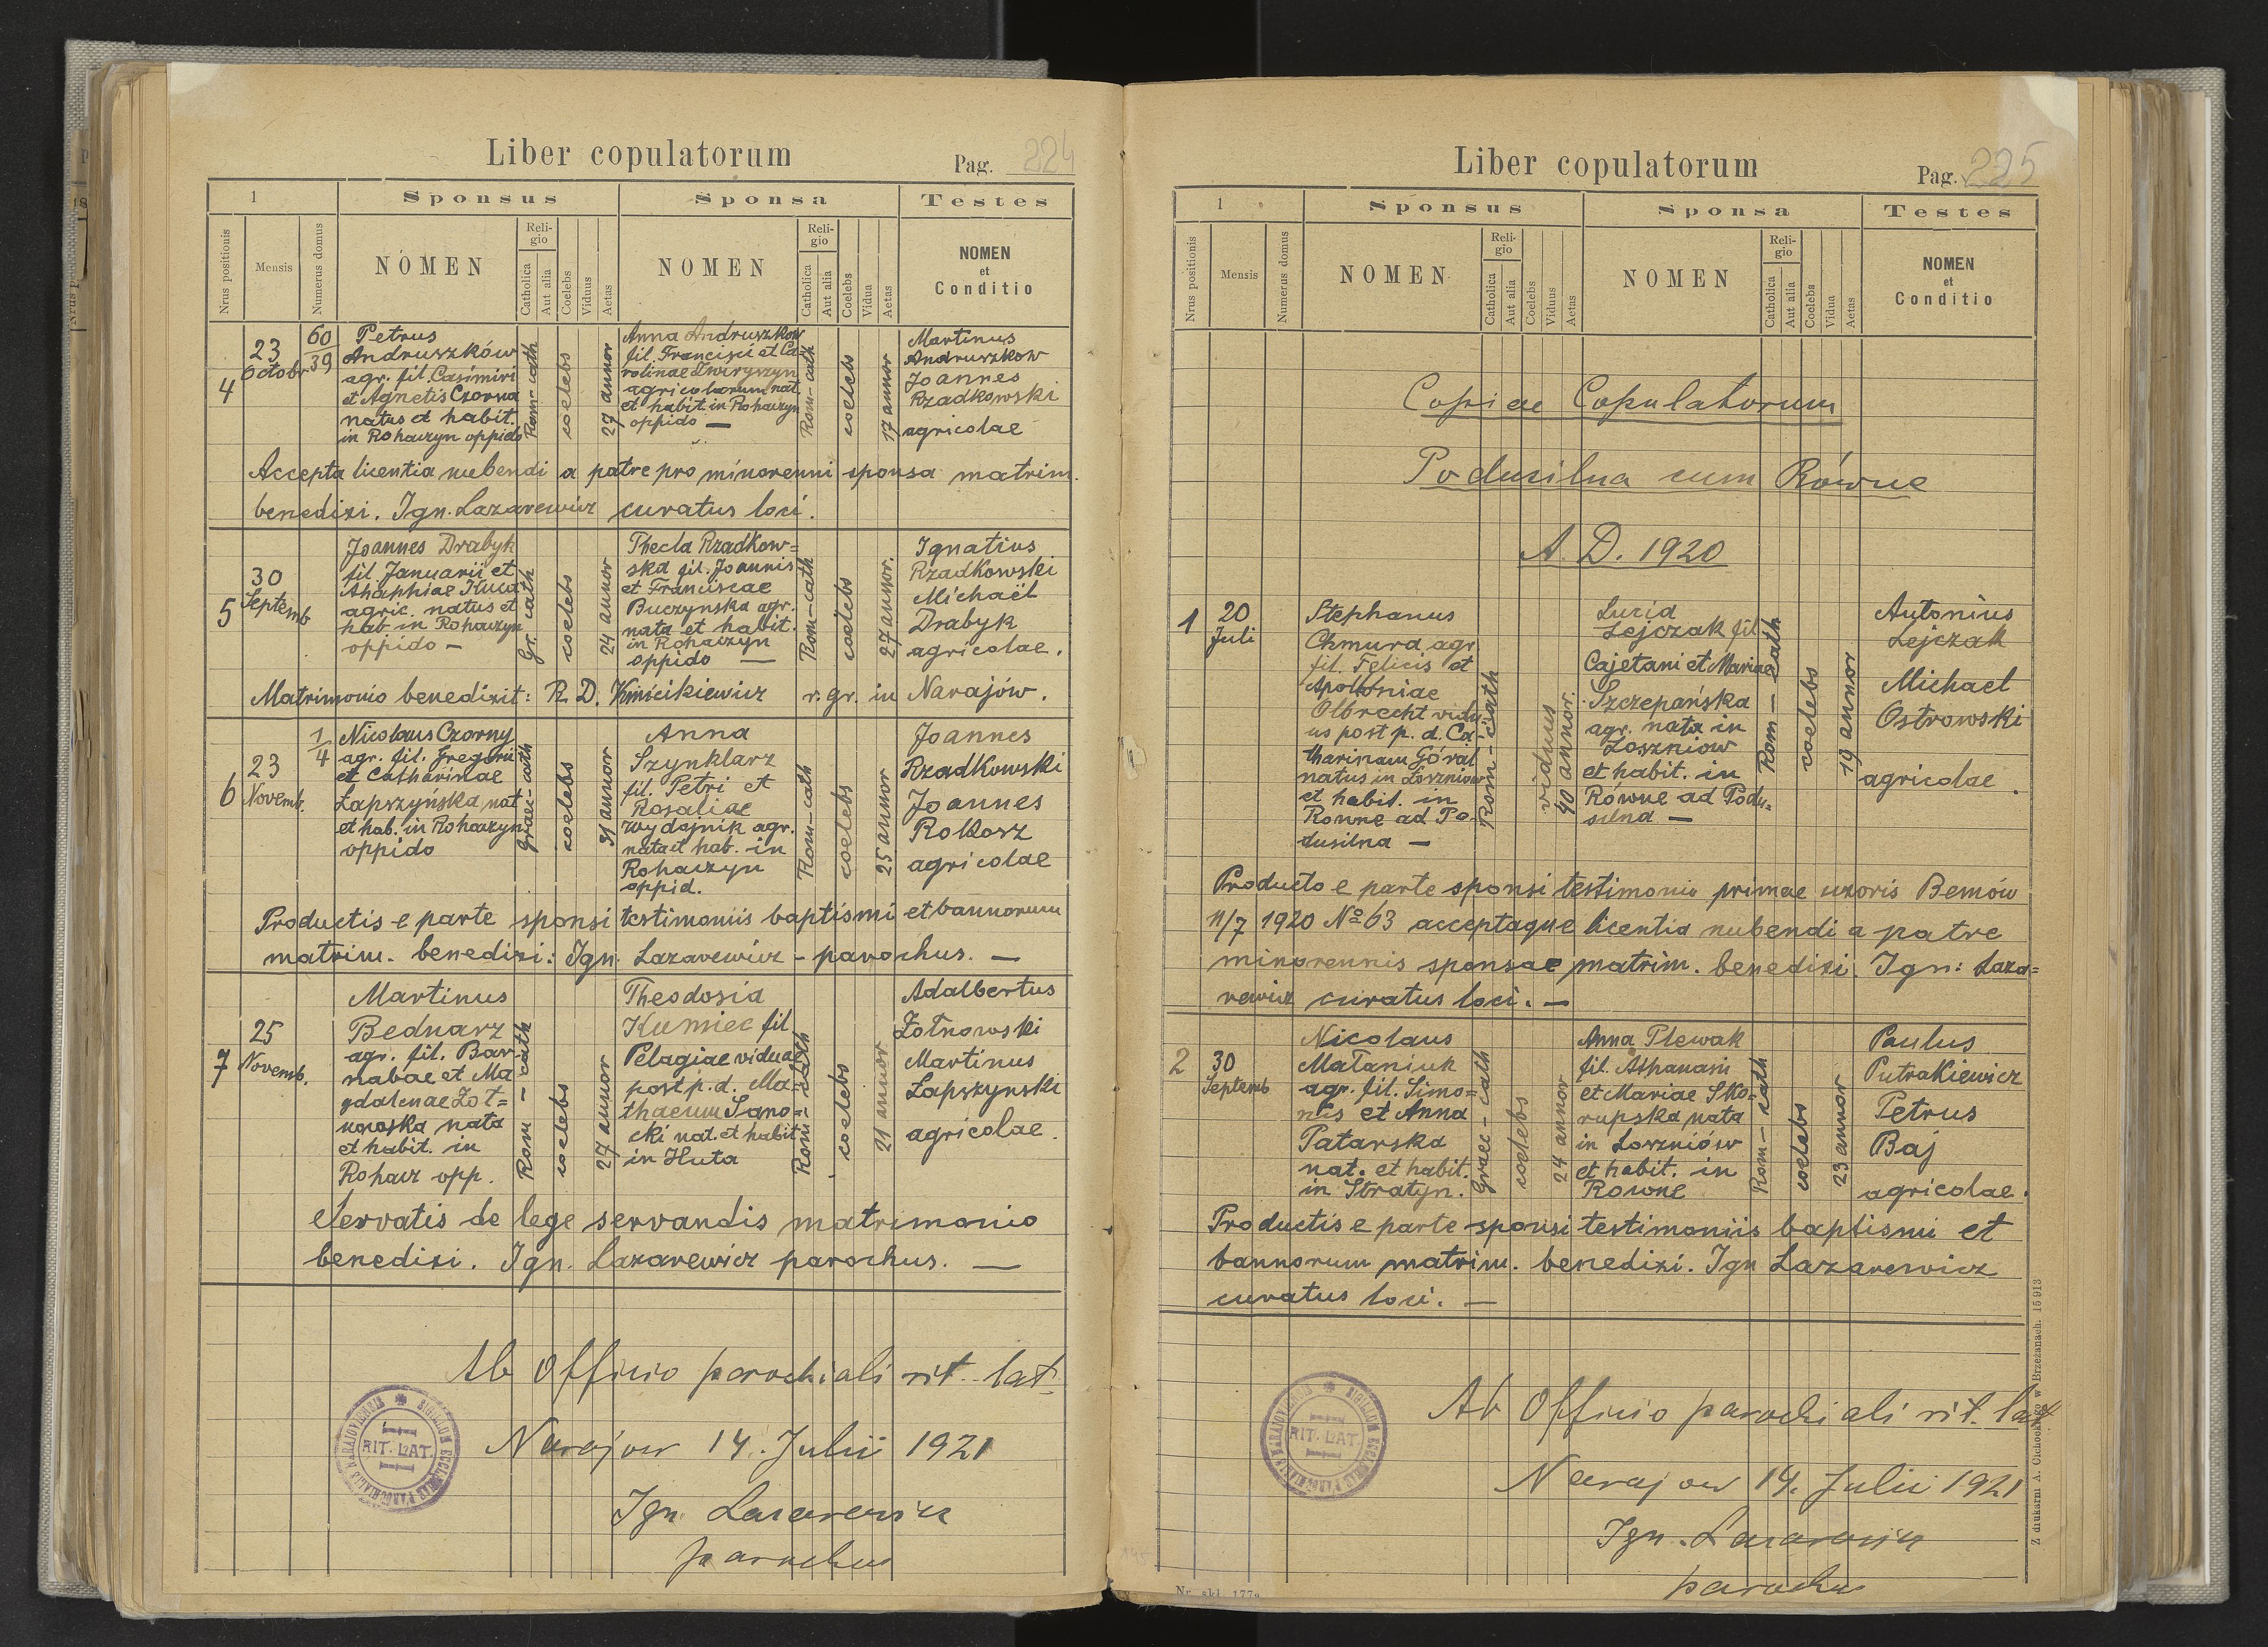 Liber copulatorum
Pag. 224
1
Sponsus
Sponsa
Testes
Nrus positionis
Mensis
Numerus domus
NOMEN
Religio
Catholica
Aut alia
Coelebs
Viduus
Aetas
NOMEN
Religio
Catholica
Aut alia
Coelebs
Vidua
Aetas
NOMEN
et
Conditio
4
23
Octobr
60
39
Petrus
Andruszków
agr. fil. Casimiri
et Agnetis Czorna
natus et habit.
in Rohaczyn oppido
Rom-cath
coelebs
27 annor
Anna Andruszkow
fil. Francisci et Ca-
rolinae Zwiryszyn
agricolarum nat.
et habit. in Rohaczyn
oppido —
Rom-cath
coelebs
17 annor
Martinus
Andruszkow
Joannes
Rzadkowski
agricolae
Accepta licentia nubendi a patre pro minorenni sponsa matrim.
benedixi. Ign. Lazarewicz curatus loci.
5
30
Septemb
Joannes Drabyk
fil. Januarii et
Ahaphiae Kuca
agric. natus et
hab in Rohaczyn
oppido —
Gr. cath
coelebs
24 annor
Thecla Rzadkow=
ska fil. Joannis
et Franciscae
Buczynska agr.
nata et habit.
in Rohaczyn
oppido —
Rom-cath
coelebs
27 annor.
Ignatius
Rzadkowski
Michaël
Drabyk
agricolae.
Matrimonio benedixit: R. D. Kmicikiewicz r. gr. in Narajów.
6
23
Novemb.
1
4
Nicolaus Czorny
agr. fil. Gregorii
et Catharinae
Łapszyńska nat
et hab. in Rohaczyn
oppido
Graec-cath
coelebs
31 annor
Anna
Szynklarz
fil. Petri et
Rosaliae
Wydajnik agr.
nata et hab. in
Rohaczyn
oppid.
Rom-cath
coelebs
25 annor
Joannes
Rzadkowski
Joannes
Rokosz
agricolae
Productis e parte sponsi testimoniis baptismi et bannorum
matrim. benedixi: Ign. Lazarewicz - parochus. —
7
25
Novemb.
Martinus
Bednarz
agr. fil. Bar-
nabae et Ma
gdalenae Żoł=
nowska nata
et habit. in
Rohacz opp.
Rom - cath
coelebs
27 annor
Theodosia
Kumiec fil
Pelagiae vidua
post p. d. Ma-
thaeum Sano-
cki nat. et habit
in Huta
Rom-cath
coelebs
21 annor
Adalbertus
Żołnowski
Martinus
Łapszynski
agricolae.
Servatis de lege servandis matrimonio
benedixi. Ign. Lazarewicz parochus. —
Ab Officio parochiali rit. lat.
Narajow 14. Julii 1921
Ign. Lazarewicz
parochus
SIGILLUM ECCLESIAE PAROCHIALIS NARAJOVIENSIS
RIT. LAT.
Liber copulatorum
Pag. 225
1
Sponsus
Sponsa
Testes
Nrus positionis
Mensis
Numerus domus
NOMEN
Religio
Catholica
Aut alia
Coelebs
Viduus
Aetas
NOMEN
Religio
Catholica
Aut alia
Coelebs
Vidua
Aetas
NOMEN
et
Conditio
Copiae Copulatorum
Podusilna cum Równe
A. D. 1920
1
20
Juli
Stephanus
Chmura agr
fil. Felicis et
Apolloniae
Olbrecht vidu-
us post p. d. Ca-
tharinam Góral
natus in Łoszniow
et habit. in
Rowne ad Po-
dusilna —
Rom-cath
viduus
40 annor.
Lucia
Lejczak fil
Cajetani et Mariae
Szczepańska
agr. nata in
Łoszniow
et habit. in
Równe ad Podu=
silna —
Rom - cath
coelebs
19 annor
Antonius
Lejczak
Michael
Ostrowski
agricolae.
Producto e parte sponsi testimonio primae uxoris Bemów
11/7 1920 No 63 acceptaque licentia nubendi a patre
minorennis sponsae matrim. benedixi. Ign: Laza=
rewicz curatus loci. —
2
30
Septemb
Nicolaus
Mataniuk
agr. fil. Simo=
nis et Anna
Patarska
nat. et habit.
in Stratyn.
Graec-cath
coelebs
24 annor
Anna Plewak
fil. Athanasii
et Mariae Sko-
rupska nata
in Łoszniów
et habit. in
Rowne
Rom-cath
coelebs
23 annor
Paulus
Putrakiewicz
Petrus
Baj
agricolae.
Productis e parte sponsi testimoniis baptismi et
bannorum matrim. benedixi. Ign Lazarewicz
curatus loci. —
Ab Officio parochiali rit. lat
Narajow 14. Julii 1921
Ign. Lazarewicz
parochus
SIGILLUM ECCLESIAE PAROCHIALIS NARAJOVIENSIS
RIT. LAT.
Z drukarni A. Cichockiego w Brzeżanach. 15913